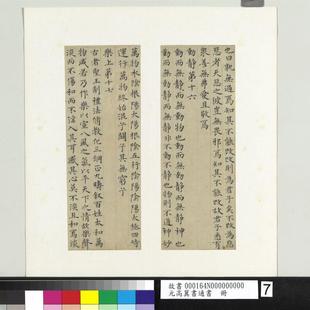 也曰孰無過焉知其不能改改則為君子矣不改為惡
惡者天惡之彼豈無畏邪焉知其不能改故君子悉有
眾善無弗愛且敬焉
動靜第十六
動而無靜靜而無動物也動而無動靜而無靜神也
動而無動靜而無靜非不動不靜也物則不通神妙
萬物水陰根陽火陽根陰五行陰陽陰陽太極四時
運行萬物終始混兮闢兮其無窮兮
樂上第十七
古者聖王制禮法脩教化三綱正九疇敘百姓太和萬
物咸若乃作樂以宣八風之氣以平天下之情故樂聲
淡而不傷和而不淫入其耳感其心莫不淡且和焉淡
故書 000164N000000000
元高翼書通書 冊
7